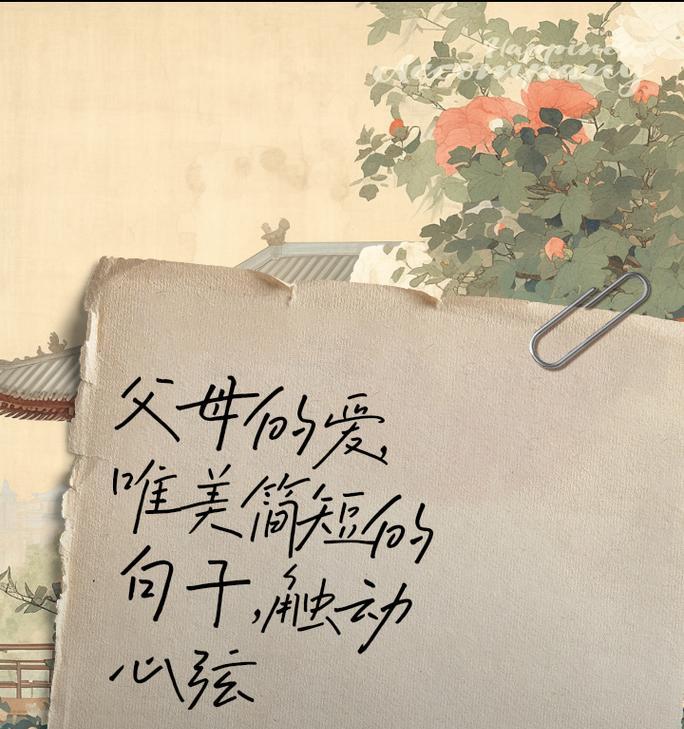 Happiness
Accompany
父母的爱,
唯美简短的
句子,触动
心弦